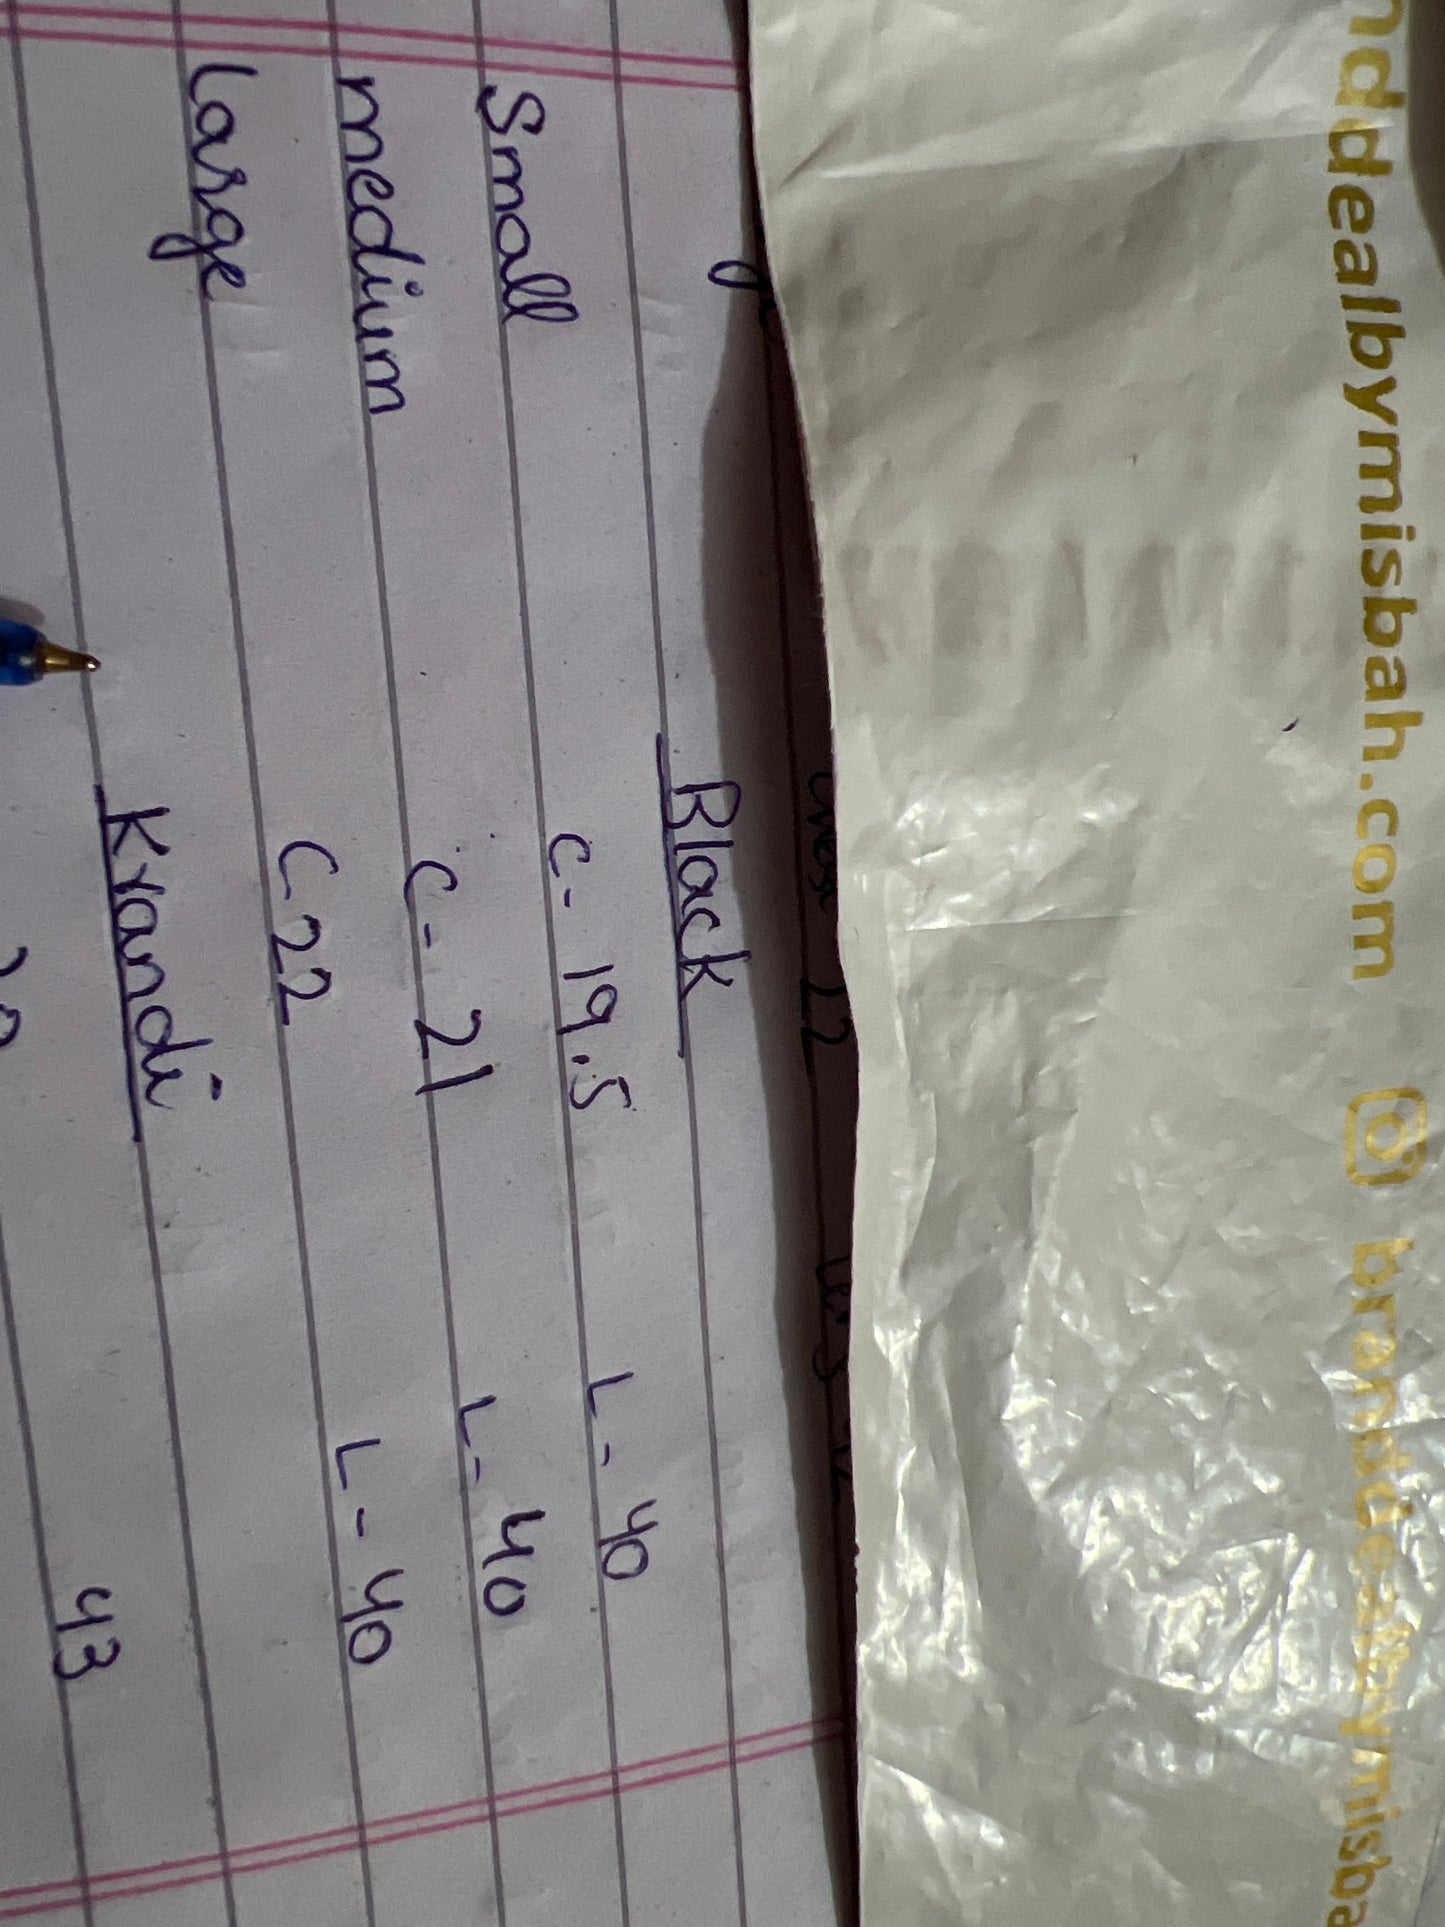 nddealbymisbah.com branddealbymisba
Black
Small C- 19.5 L- 40
medium C- 21 L- 40
Large C-22 L- 40
Krandi
43